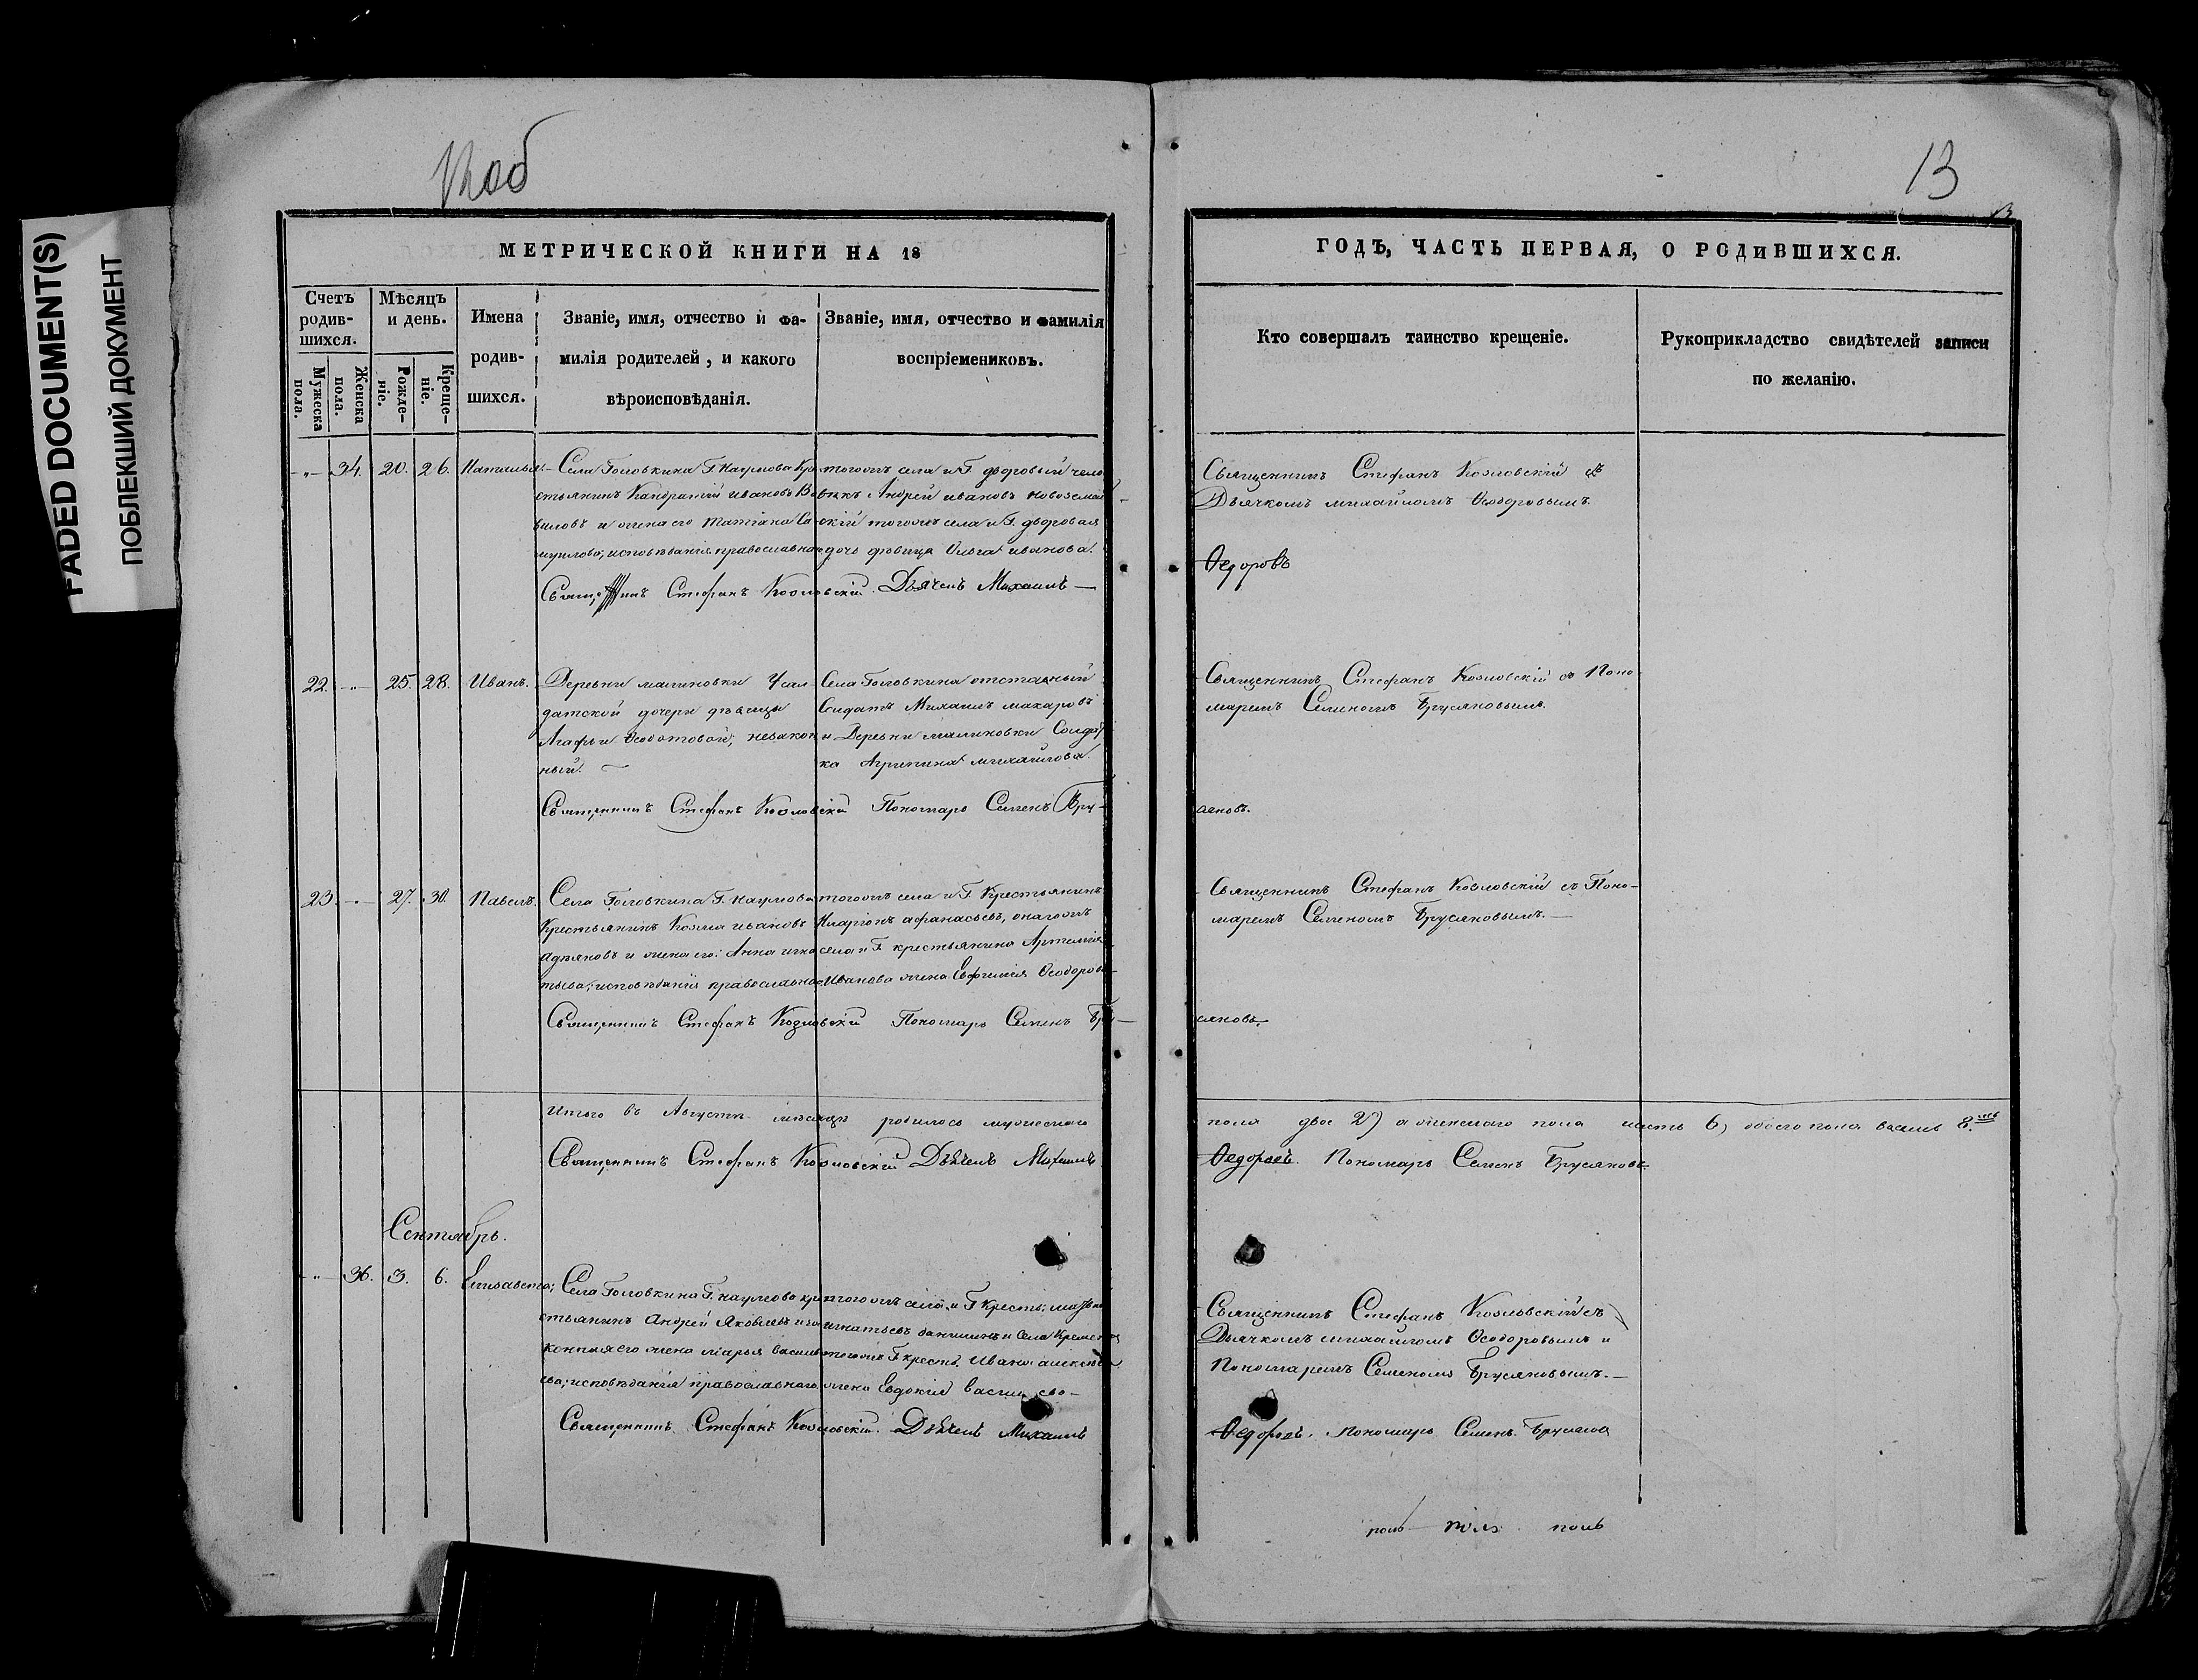 13
FADED DOCUMENT(S)
ПОБЛЕКШИЙ ДОКУМЕНТ
МЕТРИЧЕСКОЙ КНИГИ НА 18
ГОДЪ, ЧАСТЬ ПЕРВАЯ, О РОДИВШИХСЯ.
Счетъ родив-шихся.
Мужеска пола.
Женска пола.
Мѣсяцъ и день.
Рожде-ніе.
Креще-ніе.
Имена родив-шихся.
Званіе, имя, отчество и фа-
милія родителей, и какого
вѣроисповѣданія.
Званіе, имя, отчество и фамилія
воспріемениковъ.
Кто совершалъ таинство крещеніе.
Рукоприкладство свидѣтелей записи
по желанію.
-„- 34. 20. 26. Наталья
Села Головкина Г. Наумова Кре-
стьянинъ Кандратій Ивановъ
и жена его Татіана Са-
муилова; исповѣданія православнаго
тогожъ села и Г. дворовый чело
вѣкъ Андрей Ивановъ
тогожъ села и Г. дворовая
дочь дѣвица Ольга Иванова.
Священникъ Стефанъ Козловскій съ
Дьячкомъ Михайломъ Ѳеодоровымъ.
Священникъ Стефанъ Козловскій. Дьячекъ Михаилъ —
Ѳедоровъ
22. -„- 25. 28. Иванъ.
Деревни Малиновки
датской дочери дѣвицы
Агафьи Ѳедотовой, незакон
ный.
Села Головкина отставный
Солдатъ Михаилъ Макаровъ
и Деревни Малиновки Солдат
ка Агрипина Михайлова.
Священникъ Стефанъ Козловскій съ Поно-
маремъ Семеномъ Брусяновымъ.
Священникъ Стефанъ Козловскій Пономарь Семенъ Бру-
сяновъ.
23. -„- 27. 30. Павелъ.
Села Головкина Г. Наумова
Крестьянинъ Козма Ивановъ
и жена его: Анна Игна
тьева; исповѣданія православнаго
тогожъ села и Г. Крестьянинъ
Иларіонъ Афанасьевъ, онагожъ
села и Г. крестьянина Артемія
Иванова жена Евфимія Ѳеодорова
Священникъ Стефанъ Козловскій съ Поно-
маремъ Семеномъ Брусяновымъ. —
Священникъ Стефанъ Козловскій Пономарь Семенъ Бру-
сяновъ.
Итого въ Августѣ мѣсяцѣ родилось мужескаго
пола двое 2) а женскаго пола шесть 6) обоего пола восемь 8.
Священникъ Стефанъ Козловскій Дьячекъ Михаилъ
Ѳедоровъ. Пономарь Семенъ Брусяновъ
Сентябрь.
-„- 36. 3. 6. Елисавета;
Села Головкина Г. Наумова кре
стьянинъ Андрей Яковлевъ и за
конная его жена Марья Василь
ева; исповѣданія православнаго.
тогожъ села и Г. Крест.
Игнатьевъ и села
тогожъ Г. крест. Ивана Алексѣева
жена Евдокія Васильева-
Священникъ Стефанъ Козловскій съ
Дьячкомъ Михайломъ Ѳеодоровымъ и
Пономаремъ Семеномъ Брусяновымъ. —
Священникъ Стефанъ Козловскій. Дьячекъ Михаилъ
Ѳедоровъ. Пономарь Семенъ